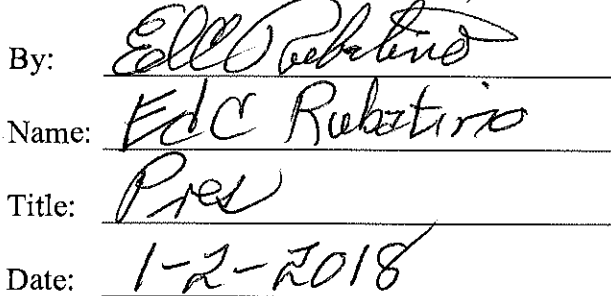 By: Ed C Rubatino
Name: Ed C Rubatino
Title: Pres
Date: 1-2-2018